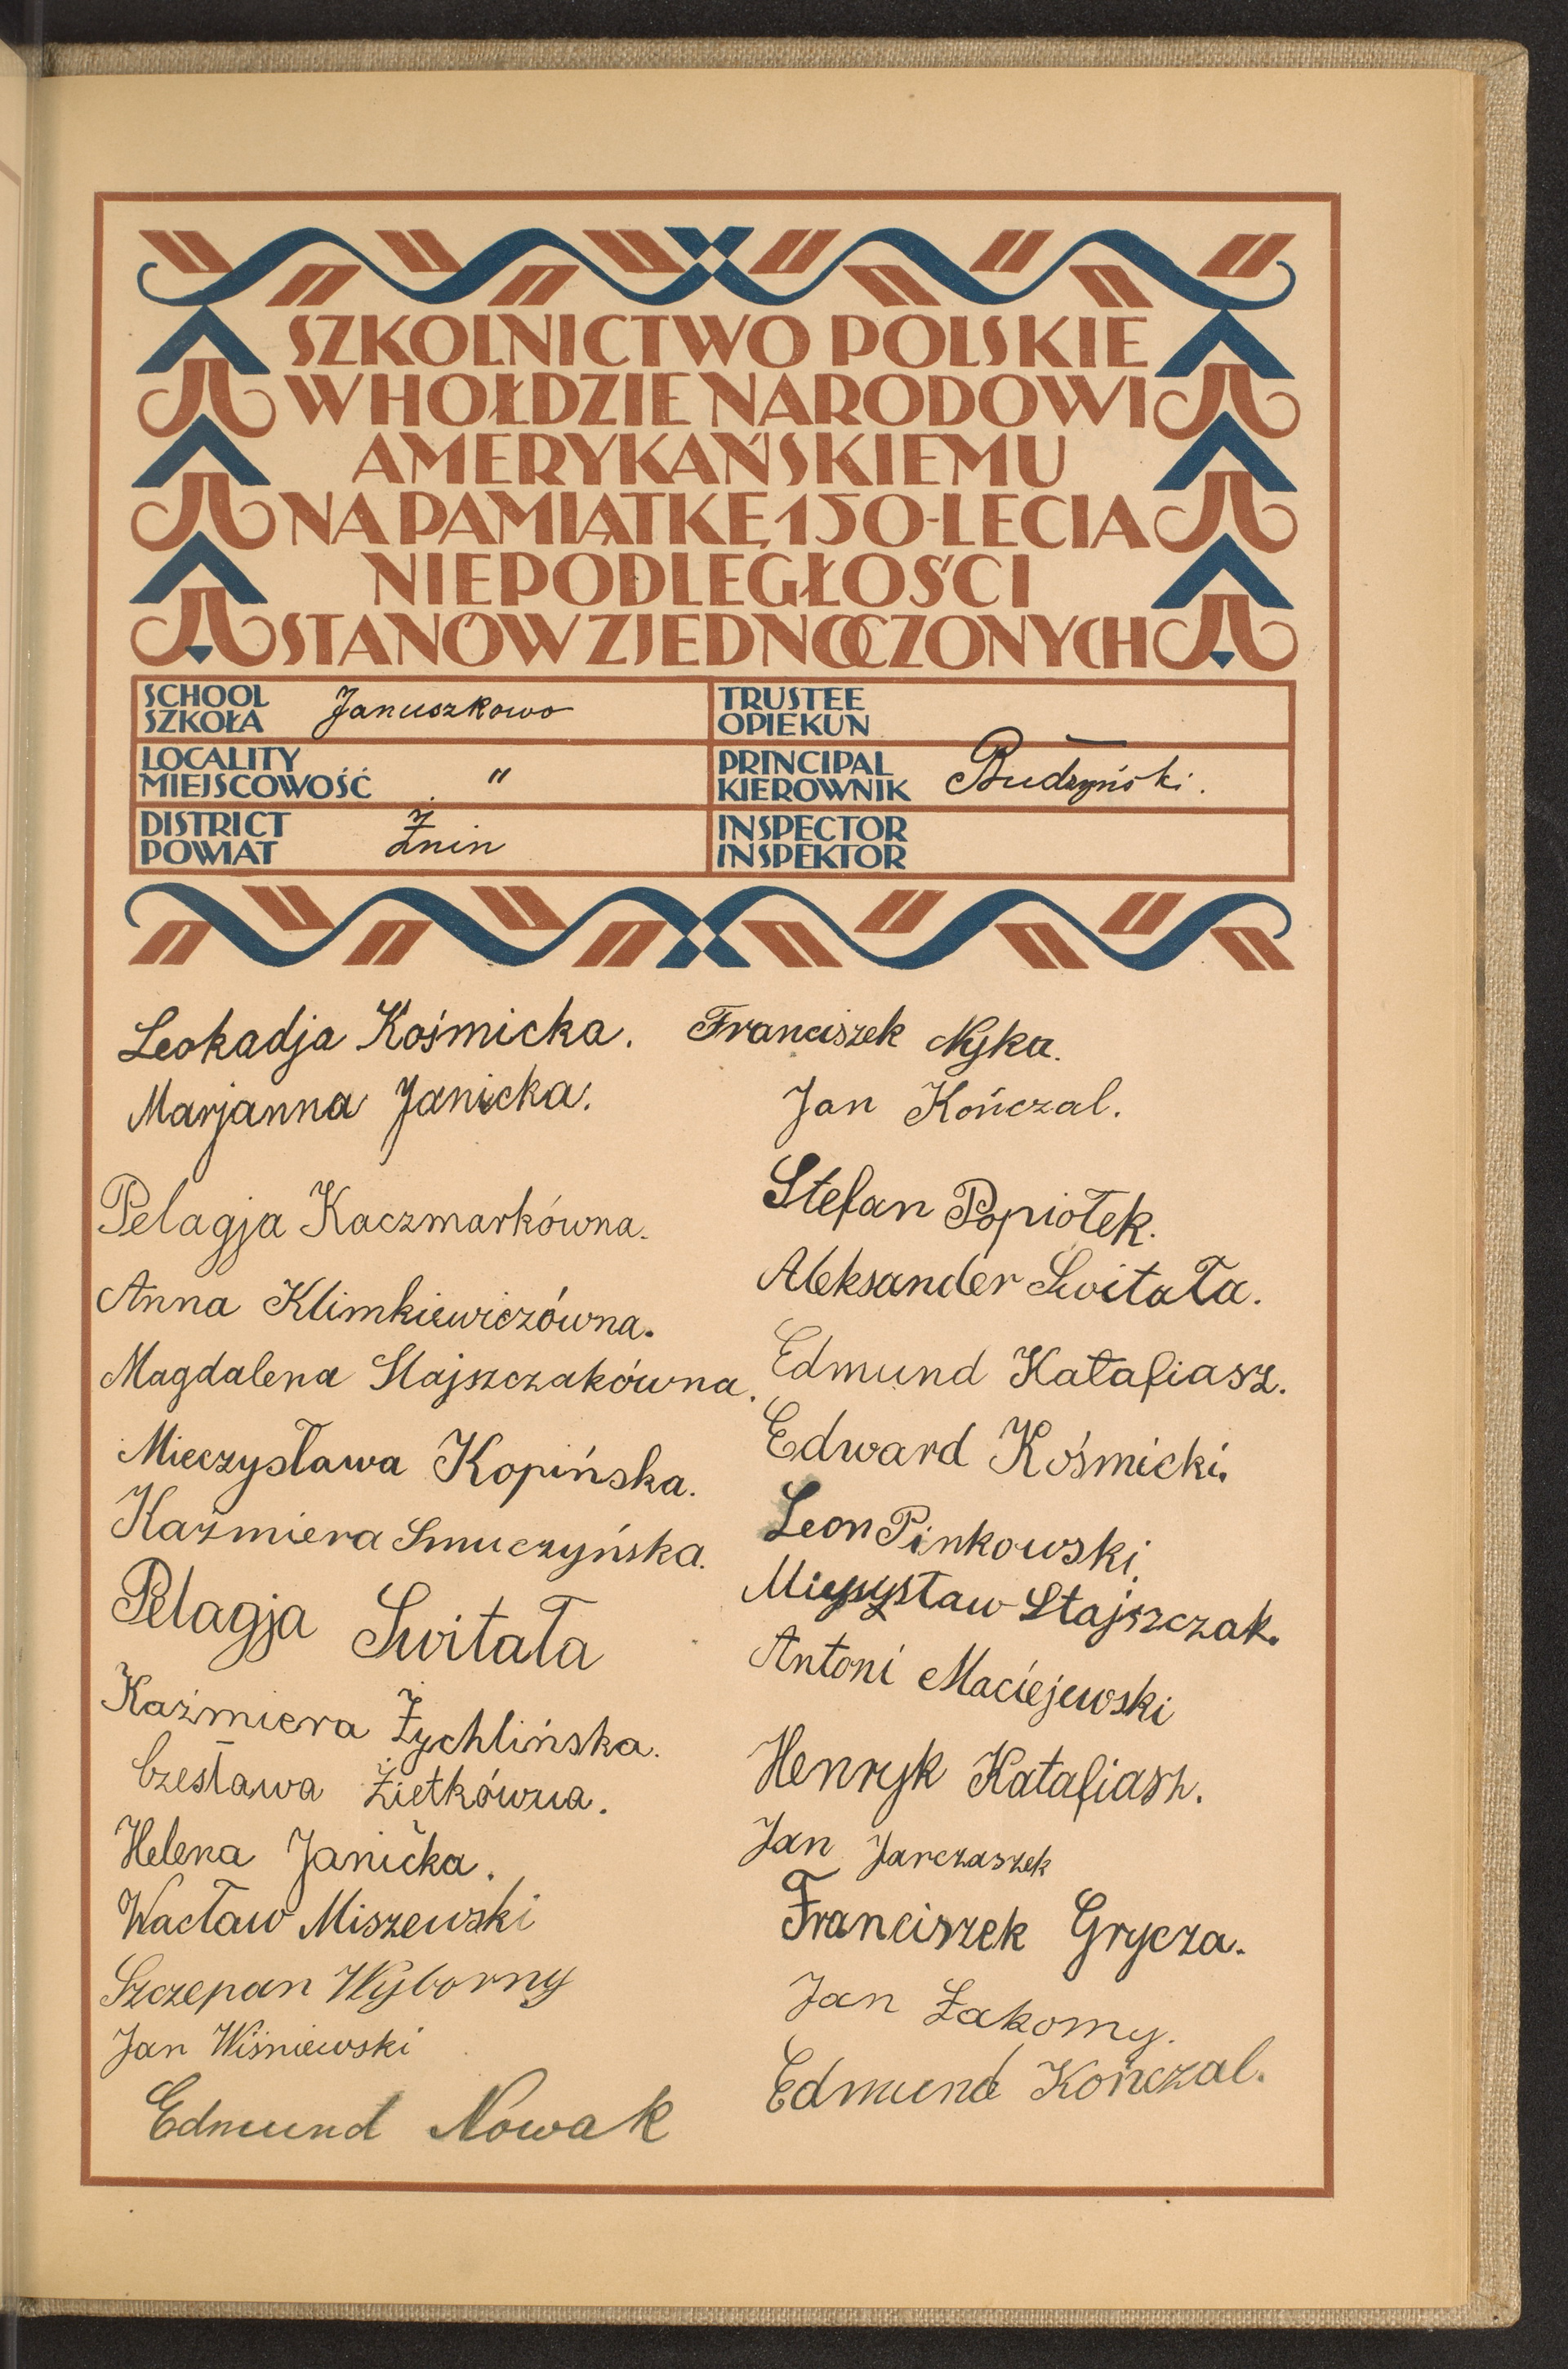 SZKOLNICTWO POLSKIE
W HOŁDZIE NARODOWI
AMERYKAŃSKIEMU
NA PAMIĄTKĘ 150-LECIA
NIEPODLEGŁOŚCI
STANÓW ZJEDNOCZONYCH
SCHOOL
SZKOŁA
Januszkowo
TRUSTEE
OPIEKUN
LOCALITY
MIEJSCOWOŚĆ
"
PRINCIPAL
KIEROWNIK
Budzyński.
DISTRICT
POWIAT
Żnin
INSPECTOR
INSPEKTOR
Leokadja Kośmicka.
Marjanna Janicka.
Pelagja Kaczmarkówna.
Anna Klimkiewiczówna.
Magdalena Stajszczakówna.
Mieczysława Kopińska.
Kaźmiera Smuczyńska.
Pelagja Switała
Kaźmiera Żychlińska.
Czesława Żietkówna.
Helena Janicka.
Wacław Miszewski
Szczepan Wyborny
Jan Wiśniewski
Edmund Nowak
Franciszek Nyka.
Jan Kończal.
Stefan Popiołek.
Aleksander Switała.
Edmund Katafiasz.
Edward Kośmicki.
Leon Pinkowski.
Stajszczak.
Antoni Maciejewski
Henryk Katafiasz.
Jan Jarczaszek
Franciszek Grycza.
Jan Łakomy.
Edmund Kończal.